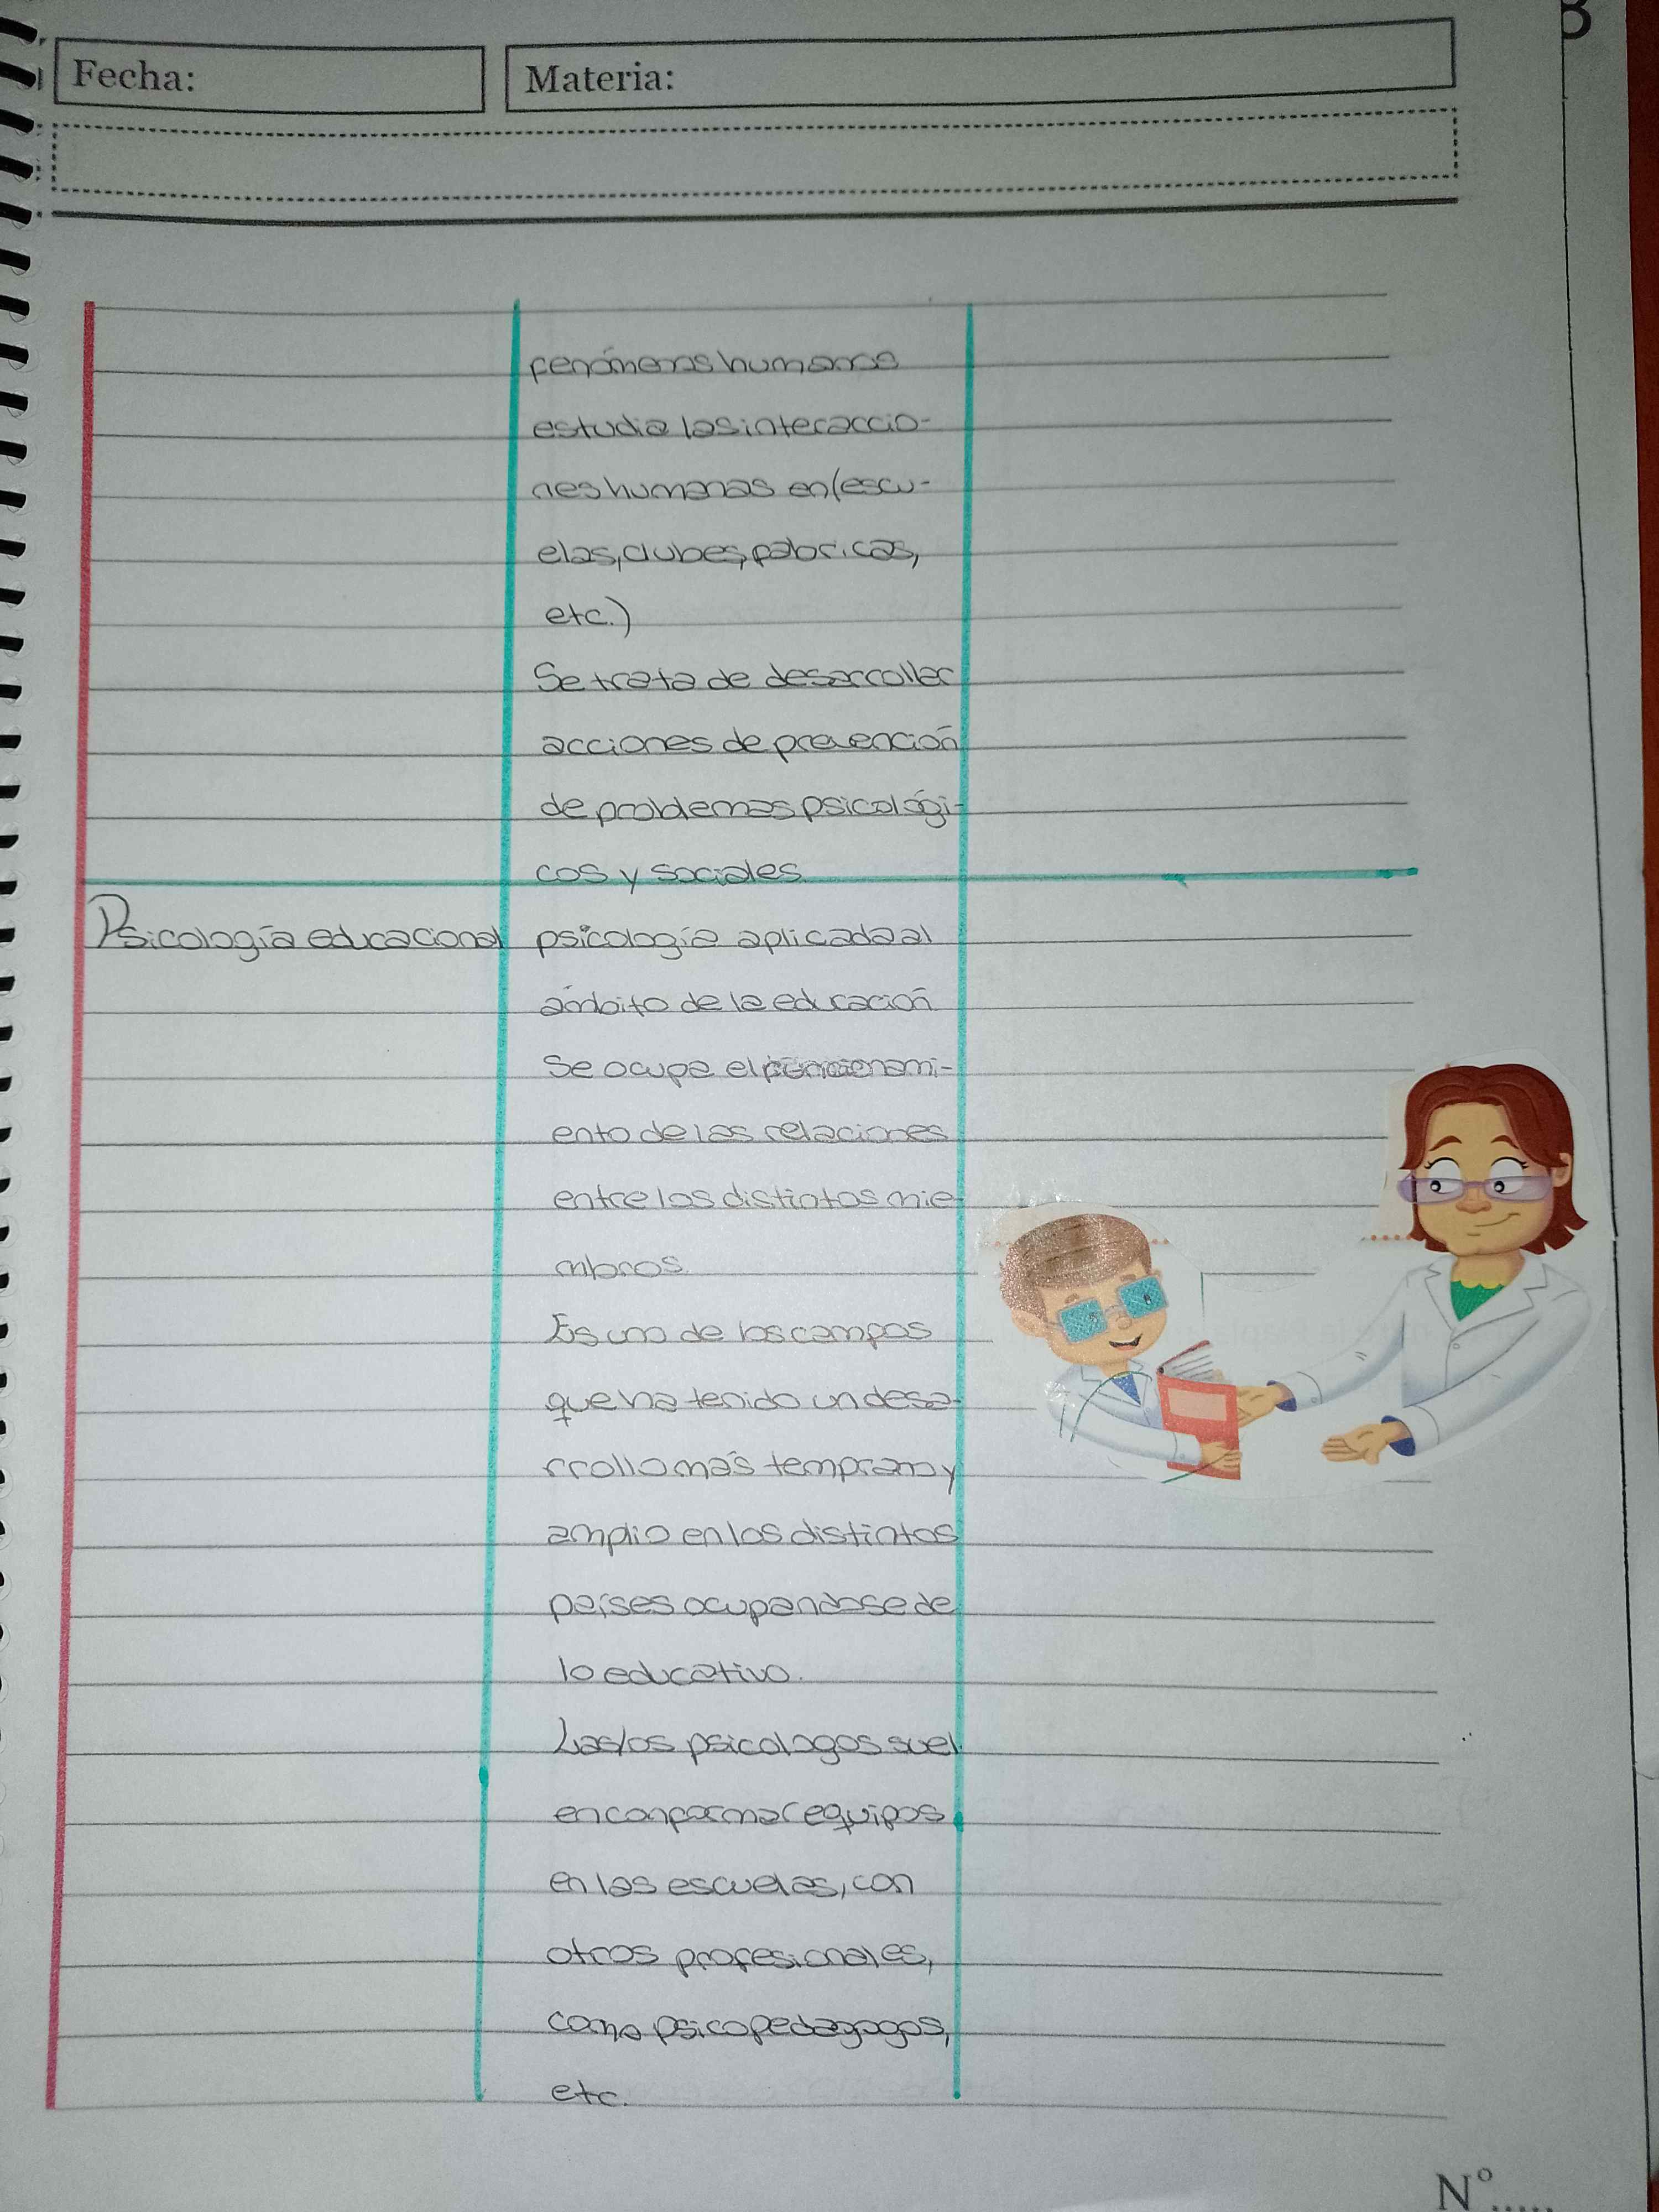 Fecha:
Materia:
fenómenos humanos
estudia las interaccio-
nes humanas en (escu-
elas, clubes, fabricas,
etc.)
Se trata de desarrollar
acciones de prevención
de problemas psicológi-
cos y sociales.
Psicología educacional
psicología aplicada al
ámbito de la educación
Se ocupa el funcionami-
ento de las relaciones
entre los distintos mie-
mbros.
Es uno de los campos
que ha tenido un desa-
rrollo más temprano y
amplio en los distintos
países ocupandose de
lo educativo.
Las/os psicologos suel
en conformar equipos
en las escuelas, con
otros profesionales,
como psicopedagogos,
etc.
N°.....